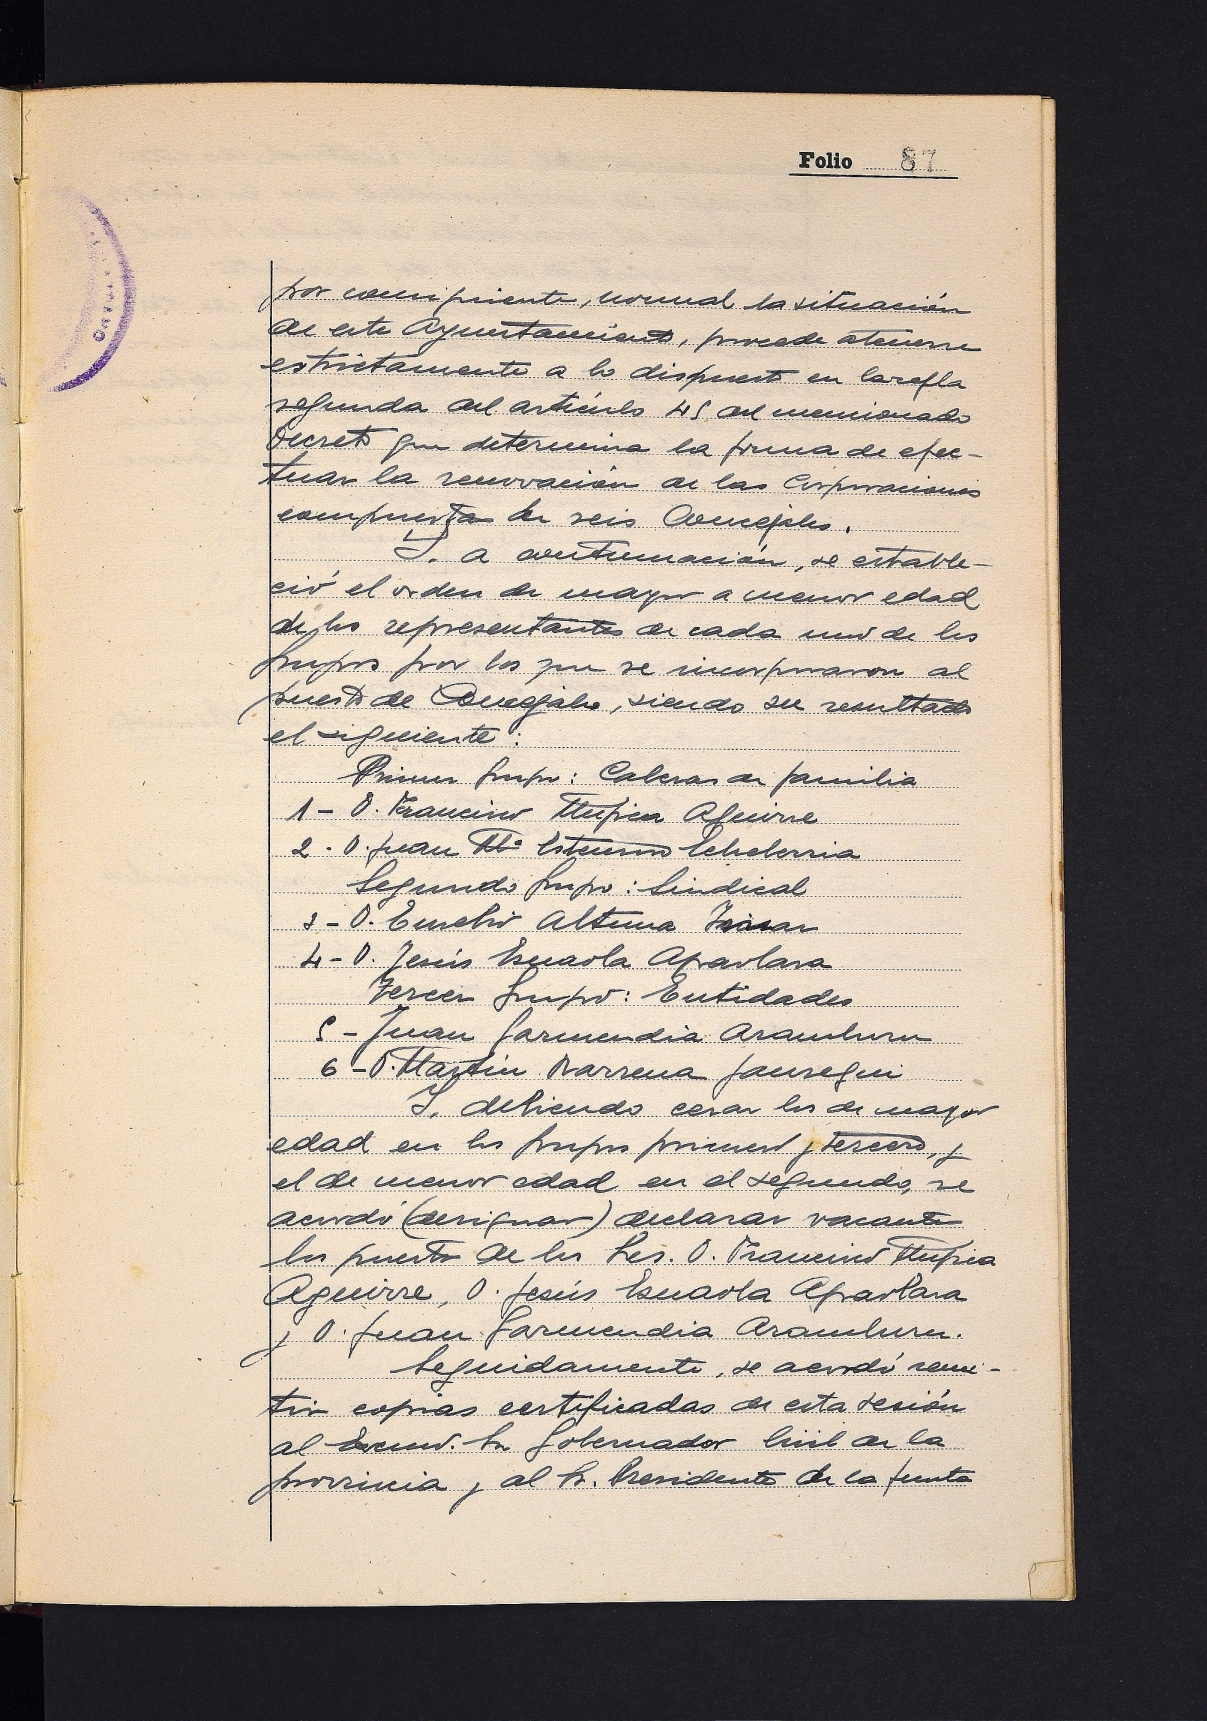 Folio 87
por consiguiente, normal la situación
de este Ayuntamiento, procede atenerse
estrictamente a lo dispuesto en la regla
segunda del artículo 45 del mencionado
Decreto que determina la forma de efec-
tuar la renovación de las Corporaciones
compuesta de seis Concejales.
Y, a continuación, se estable-
ció el orden de mayor a menor edad
de los representantes de cada uno de los
grupos por los que se incorporaron al
puesto de Concejales, siendo su resultado
el siguiente:
Primer grupo: Cabezas de familia
1- D. Francisco Mujica Aguirre
2- D. Juan Mª Echeverria
Segundo grupo: Sindical
3- D. Eusebio Altuna
4- D. Jesús Esnaola Apaolaza
Tercer grupo: Entidades
5- Juan Garmendia Aramburu
6- D. Martín Barrena Jauregui
Y, debiendo cesar los de mayor
edad en los grupos primero y tercero, y
el de menor edad en el segundo, se
acordó (designar) declarar vacante
los puestos de los Sres. D. Francisco Mujica
Aguirre, D. Jesús Esnaola Apaolaza
y D. Juan Garmendia Aramburu.
Seguidamente, se acordó remi-
tir copias certificadas de esta sesión
al Excmo. Sr. Gobernador Civil de la
provincia y al Sr. Presidente de la Junta